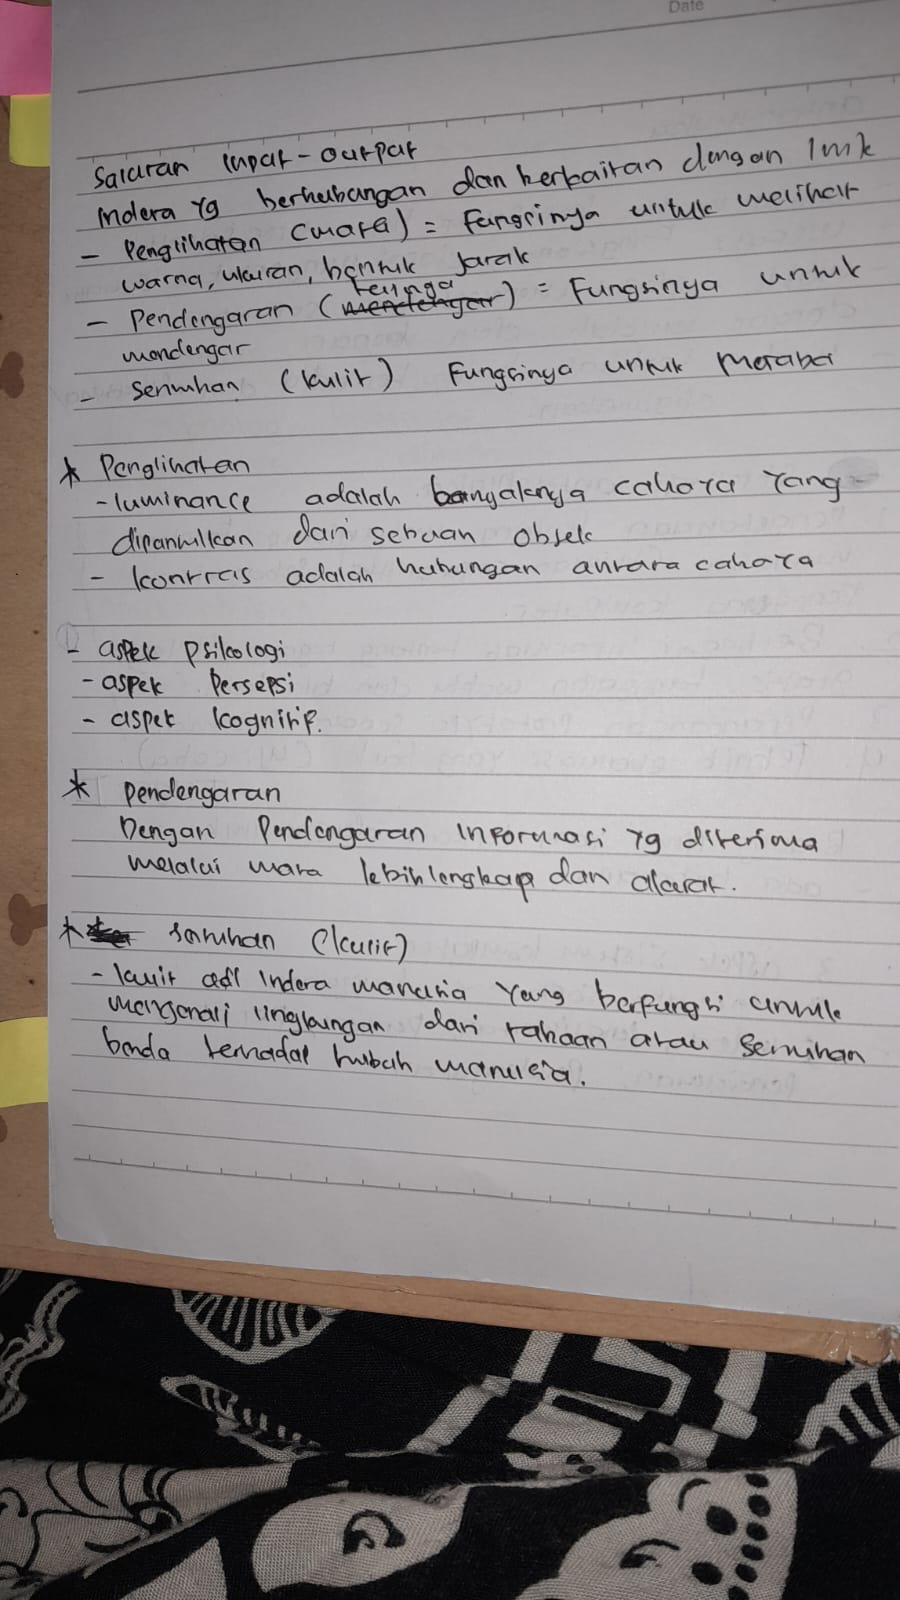 Date
Saluran Input-Output
Indera yg berhubungan dan berkaitan dengan Imk
- Penglihatan (mata) = Fungsinya untuk melihat
warna, ukuran, bentuk jarak
telinga
- Pendengaran (mendengar) = Fungsinya untuk
mendengar
- Sentuhan (kulit) Fungsinya untuk Meraba
* Penglihatan
- luminance adalah banyaknya cahaya Yang
dipantulkan dari sebuah objek
- kontras adalah hubungan antara cahaya
- aspek psikologi
- aspek Persepsi
- aspek kognitif.
* Pendengaran
Dengan Pendengaran Informasi yg diterima
melalui mata lebih lengkap dan akurat.
* Sentuhan (kulit)
- kulit adl Indera manusia Yang berfungsi untuk
mengenali lingkungan dari rabaan atau Sentuhan
benda terhadap tubuh manusia.